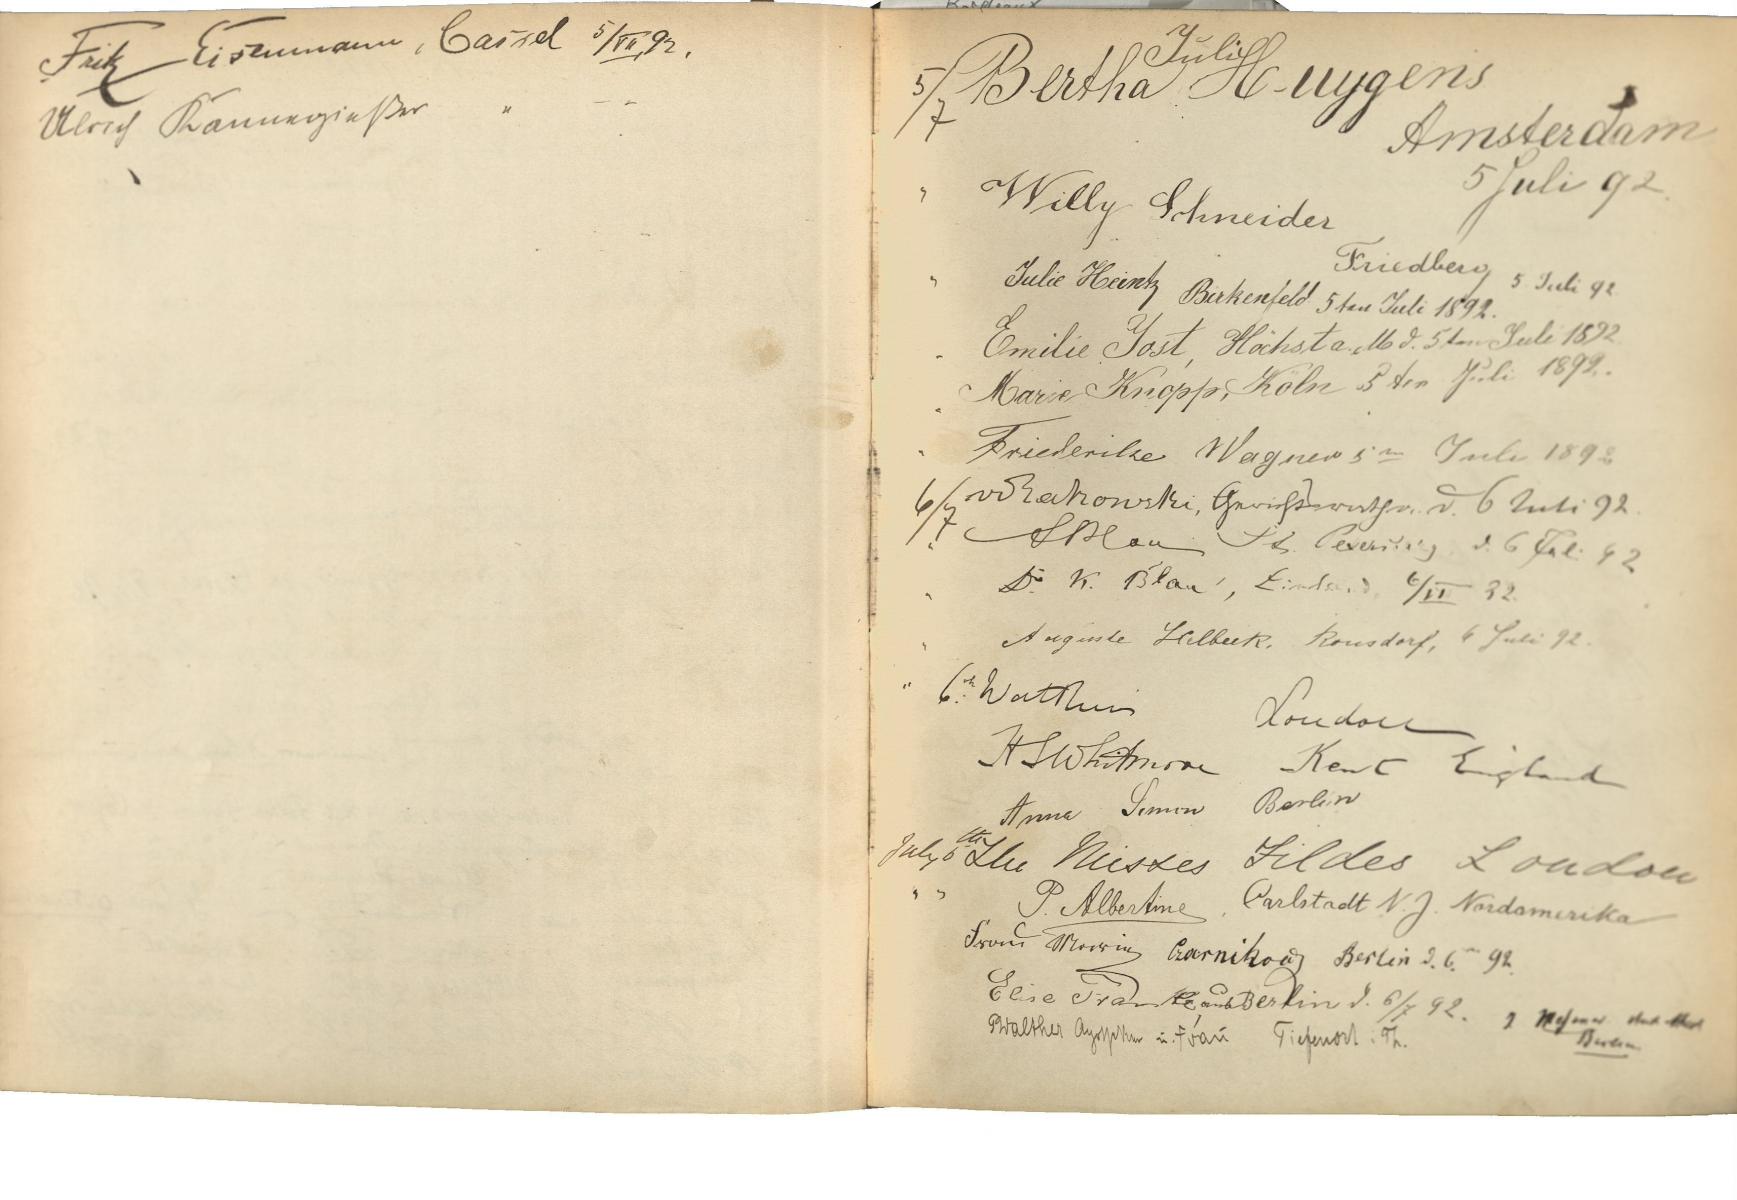 Fritz Eisenmann, Cassel 5/VII 92.
Ulrich Kannegießer " – –
5/7 Bertha Julie Huygens
Amsterdam
5 Juli 92.
" Willy Schneider
Friedberg 5 Juli 92
" Julie Heintz Birkenfeld 5ten Juli 1892.
" Emilie Jost, Höchst a. M d. 5ten Juli 1892
" Marie Knopp, Köln 5ten Juli 1892.
" Friederike Wagner 5ten Juli 1892
6/7 d. 6 Juli 92.
" Blau St. d. 6 Juli 92
" Dr. K. Blau, 6/VII 92.
" Auguste Halbeck. Ronsdorf, 6 Juli 92.
" 6. London
H S Whitmore Kent England
Anna Simon Berlin
July 6th The Misses Fildes London
" " P. Albertine, Carlstadt N. J. Nordamerika
Czarnikow Berlin d. 6ten 92.
Elise Berlin d. 6/7 92.
Berlin
Walther u. Frau Tiefenort i. Th.